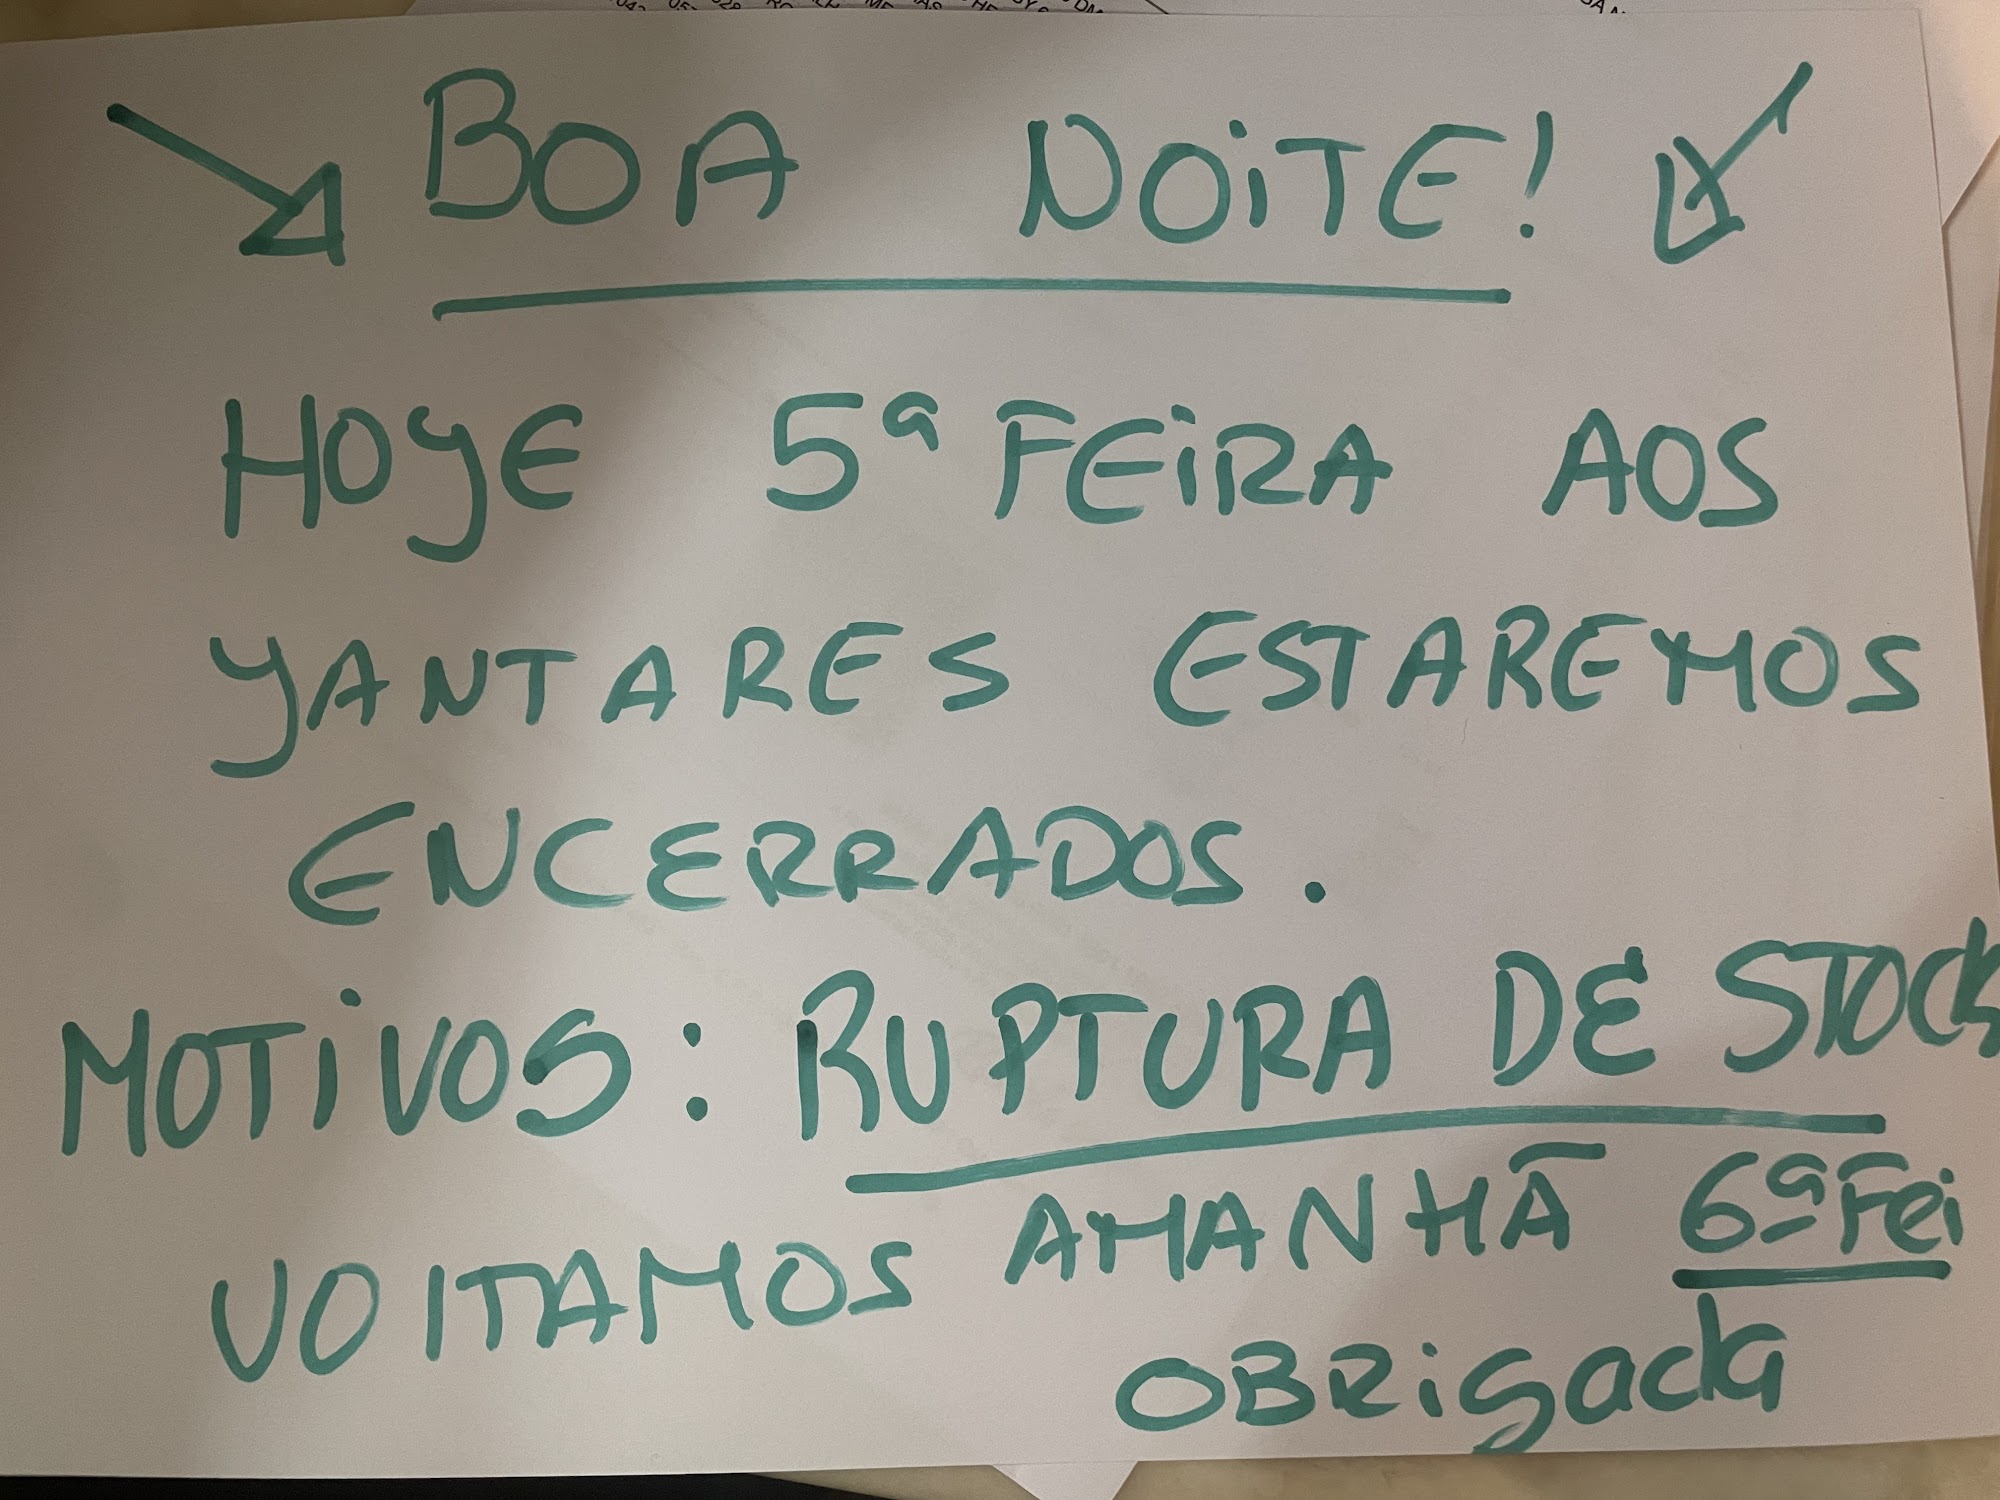 BOA NOITE!
HOYE 5ª FEIRA AOS
YANTARES ESTAREMOS
ENCERRADOS.
MOTIVOS: RUPTURA DE STOCK
VOLTAMOS AMANHÃ 6ª Fei
OBRIGADA